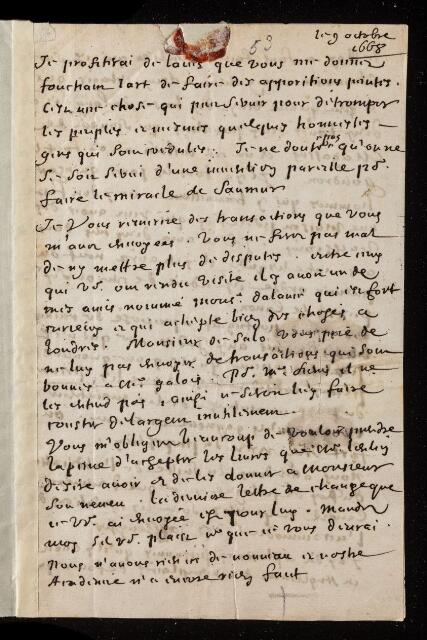 le 9 octobre
1668
53
Je profitirai de lauis que vous me donnez
touchant lart de faire des apparitions peintes.
Cest une chose qui peut servir pour détromper
les peuples et mesmes quelques honnestes
gens qui sont credules. Je ne doute pas qu'on ne
se soit servi d'une invention pareille pr.
faire le miracle de Saumur
Je Vous remercie des transactions que vous
m'avez envoyées. Vous ne ferez pas mal
de ny mettre plus de disputes. entre ceux
qui vs. ont rendu visite il y avoit un de
mes amis nommé monsr. dalancé qui est fort
curieux et qui achepte bien des choses a
londres. Monsieur de Salo vous prie de
ne luy pas envoyer de transactions qui sont
bonnes a mr. galois. Pr. mr. il ne
les entend pas et ainsi ce seroit luy faire
couster de largent inutilement.
Vous m'obligerez beaucoup de vouloir prendre
la peine d'achepter les livres que mr.
desire avoir et de les donner a Monsieur
son neveu. la derniere lettre de change que
ie vs. ai envoyée est pour luy. Mandez
moy sil vs. plaist ce que ie vous devrai.
Nous n'avons rien de nouveau et nostre
Academie n'a encore rien faict